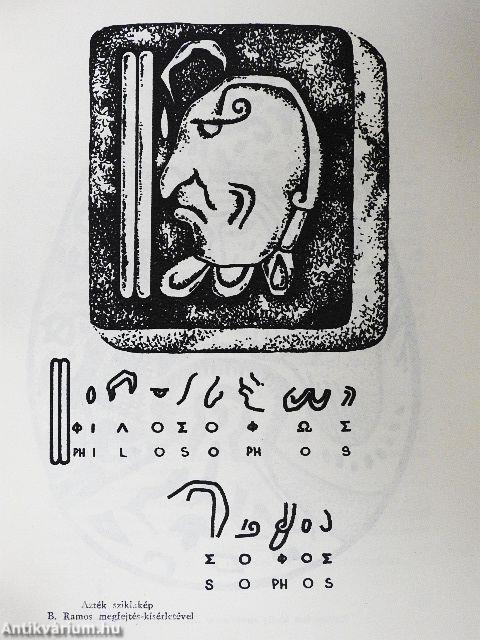 Φ Ι Λ Ο Σ Ο Φ Ω Σ
PH I L O S O PH O S
Σ Ο Φ Ο Σ
S O PH O S
Azték sziklakép
B. Ramos megfejtés-kisérletével
Antikvárium.hu